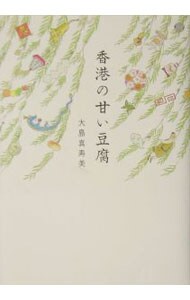 香港の甘い豆腐
大島真寿美